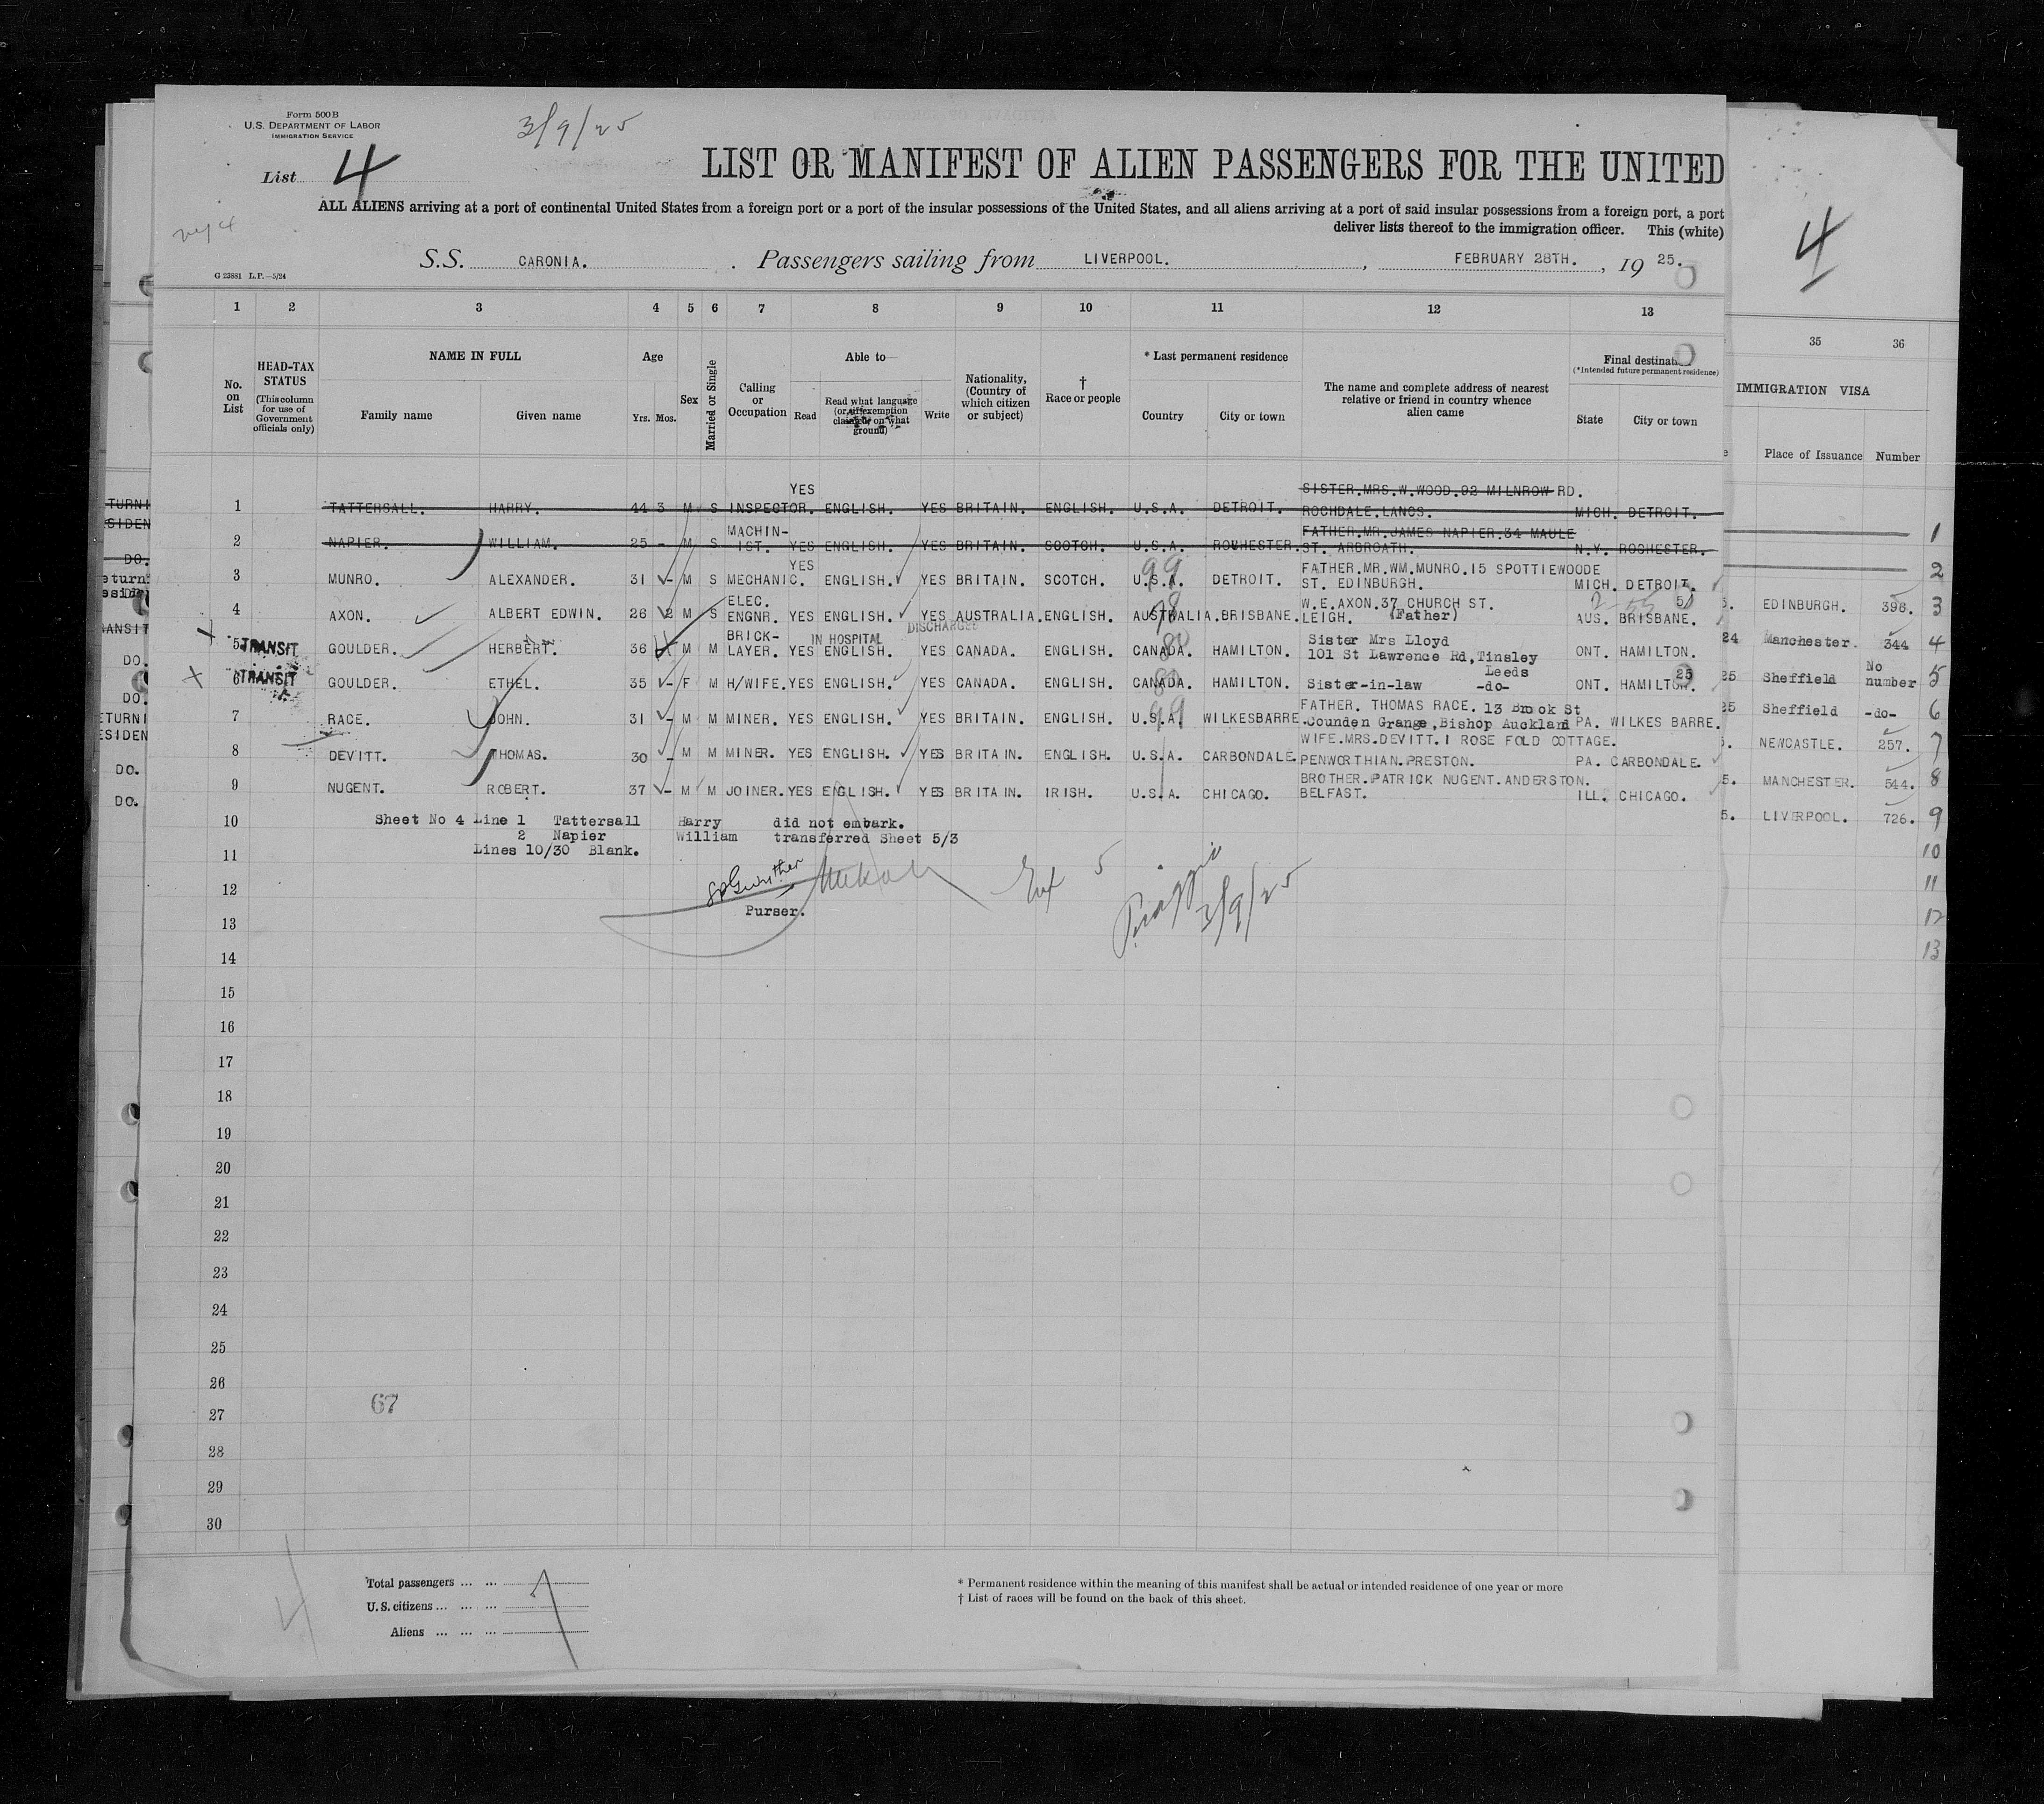 Form 500B
U.S. DEPARTMENT OF LABOR
IMMIGRATION SERVICE
3/9/25
List 4
LIST OR MANIFEST OF ALIEN PASSENGERS FOR THE UNITED
ALL ALIENS arriving at a port of continental United States from a foreign port or a port of the insular possessions of the United States, and all aliens arriving at a port of said insular possessions from a foreign port, a port
deliver lists thereof to the immigration officer. This (white)
4
S.S. CARONIA. Passengers sailing from LIVERPOOL. , FEBRUARY 28TH. , 19 25.
G 23881 L.P.—5/24
1 2 3 4 5 6 7 8 9 10 11 12 13 35 36
No. on List
HEAD-TAX STATUS (This column for use of Government officials only)
NAME IN FULL
Family name Given name
Age
Yrs. Mos.
Sex
Married or Single
Calling or Occupation
Able to
Read Read what language (or, if exemption claimed, on what ground) Write
Nationality, (Country of which citizen or subject)
† Race or people
* Last permanent residence
Country City or town
The name and complete address of nearest relative or friend in country whence alien came
Final destinat
(*Intended future permanent residence)
State City or town
IMMIGRATION VISA
Place of Issuance Number
1 TATTERSALL. HARRY. 44 3 M S INSPECTOR. YES ENGLISH. YES BRITAIN. ENGLISH. U.S.A. DETROIT. SISTER.MRS.W.WOOD.92 MILNROW RD. ROCHDALE.LANCS. MICH. DETROIT. 1
2 NAPIER. WILLIAM. 25 - M S MACHIN-IST. YES ENGLISH. YES BRITAIN. SCOTCH. U.S.A. ROCHESTER. FATHER.MR.JAMES NAPIER.34 MAULE ST. ARBROATH. N.Y. ROCHESTER. 2
3 MUNRO. ALEXANDER. 31 - M S MECHANIC. YES ENGLISH. YES BRITAIN. SCOTCH. U.S.A. DETROIT. FATHER.MR.WM.MUNRO.15 SPOTTIEWOODE ST. EDINBURGH. MICH. DETROIT. 5. EDINBURGH. 396. 3
4 AXON. ALBERT EDWIN. 26 2 M S ELEC. ENGNR. YES ENGLISH. YES AUSTRALIA. ENGLISH. AUSTRALIA. BRISBANE. W.E.AXON.37 CHURCH ST. LEIGH. (Father) AUS. BRISBANE. 24 Manchester. 344 4
5 TRANSIT GOULDER. HERBERT. 36 - M M BRICK-LAYER. YES ENGLISH. IN HOSPITAL DISCHARGED YES CANADA. ENGLISH. CANADA. HAMILTON. Sister Mrs Lloyd 101 St Lawrence Rd,Tinsley Leeds ONT. HAMILTON. 25 Sheffield No number 5
6 TRANSIT GOULDER. ETHEL. 35 - F M H/WIFE. YES ENGLISH. YES CANADA. ENGLISH. CANADA. HAMILTON. Sister-in-law -do- ONT. HAMILTON. 25 Sheffield -do- 6
7 RACE. JOHN. 31 - M M MINER. YES ENGLISH. YES BRITAIN. ENGLISH. U.S.A. WILKESBARRE. FATHER. THOMAS RACE. 13 Brook St Counden Grange,Bishop Auckland PA. WILKES BARRE. 5. NEWCASTLE. 257. 7
8 DEVITT. THOMAS. 30 - M M MINER. YES ENGLISH. YES BRITAIN. ENGLISH. U.S.A. CARBONDALE. WIFE.MRS.DEVITT.1 ROSE FOLD COTTAGE. PENWORTHIAN.PRESTON. PA. CARBONDALE. 5. MANCHESTER. 544. 8
9 NUGENT. ROBERT. 37 - M M JOINER. YES ENGLISH. YES BRITAIN. IRISH. U.S.A. CHICAGO. BROTHER.PATRICK NUGENT.ANDERSTON. BELFAST. ILL. CHICAGO. 5. LIVERPOOL. 726. 9
10 Sheet No 4 Line 1 Tattersall Harry did not embark. 10
2 Napier William transferred Sheet 5/3
11 Lines 10/30 Blank. 11
12 12
Purser.
3/9/25
13 13
14
15
16
17
18
19
20
21
22
23
24
25
26
67
27
28
29
30
4
Total passengers ... ... 7
U.S. citizens ... ... ...
Aliens ... ... ...
* Permanent residence within the meaning of this manifest shall be actual or intended residence of one year or more
† List of races will be found on the back of this sheet.